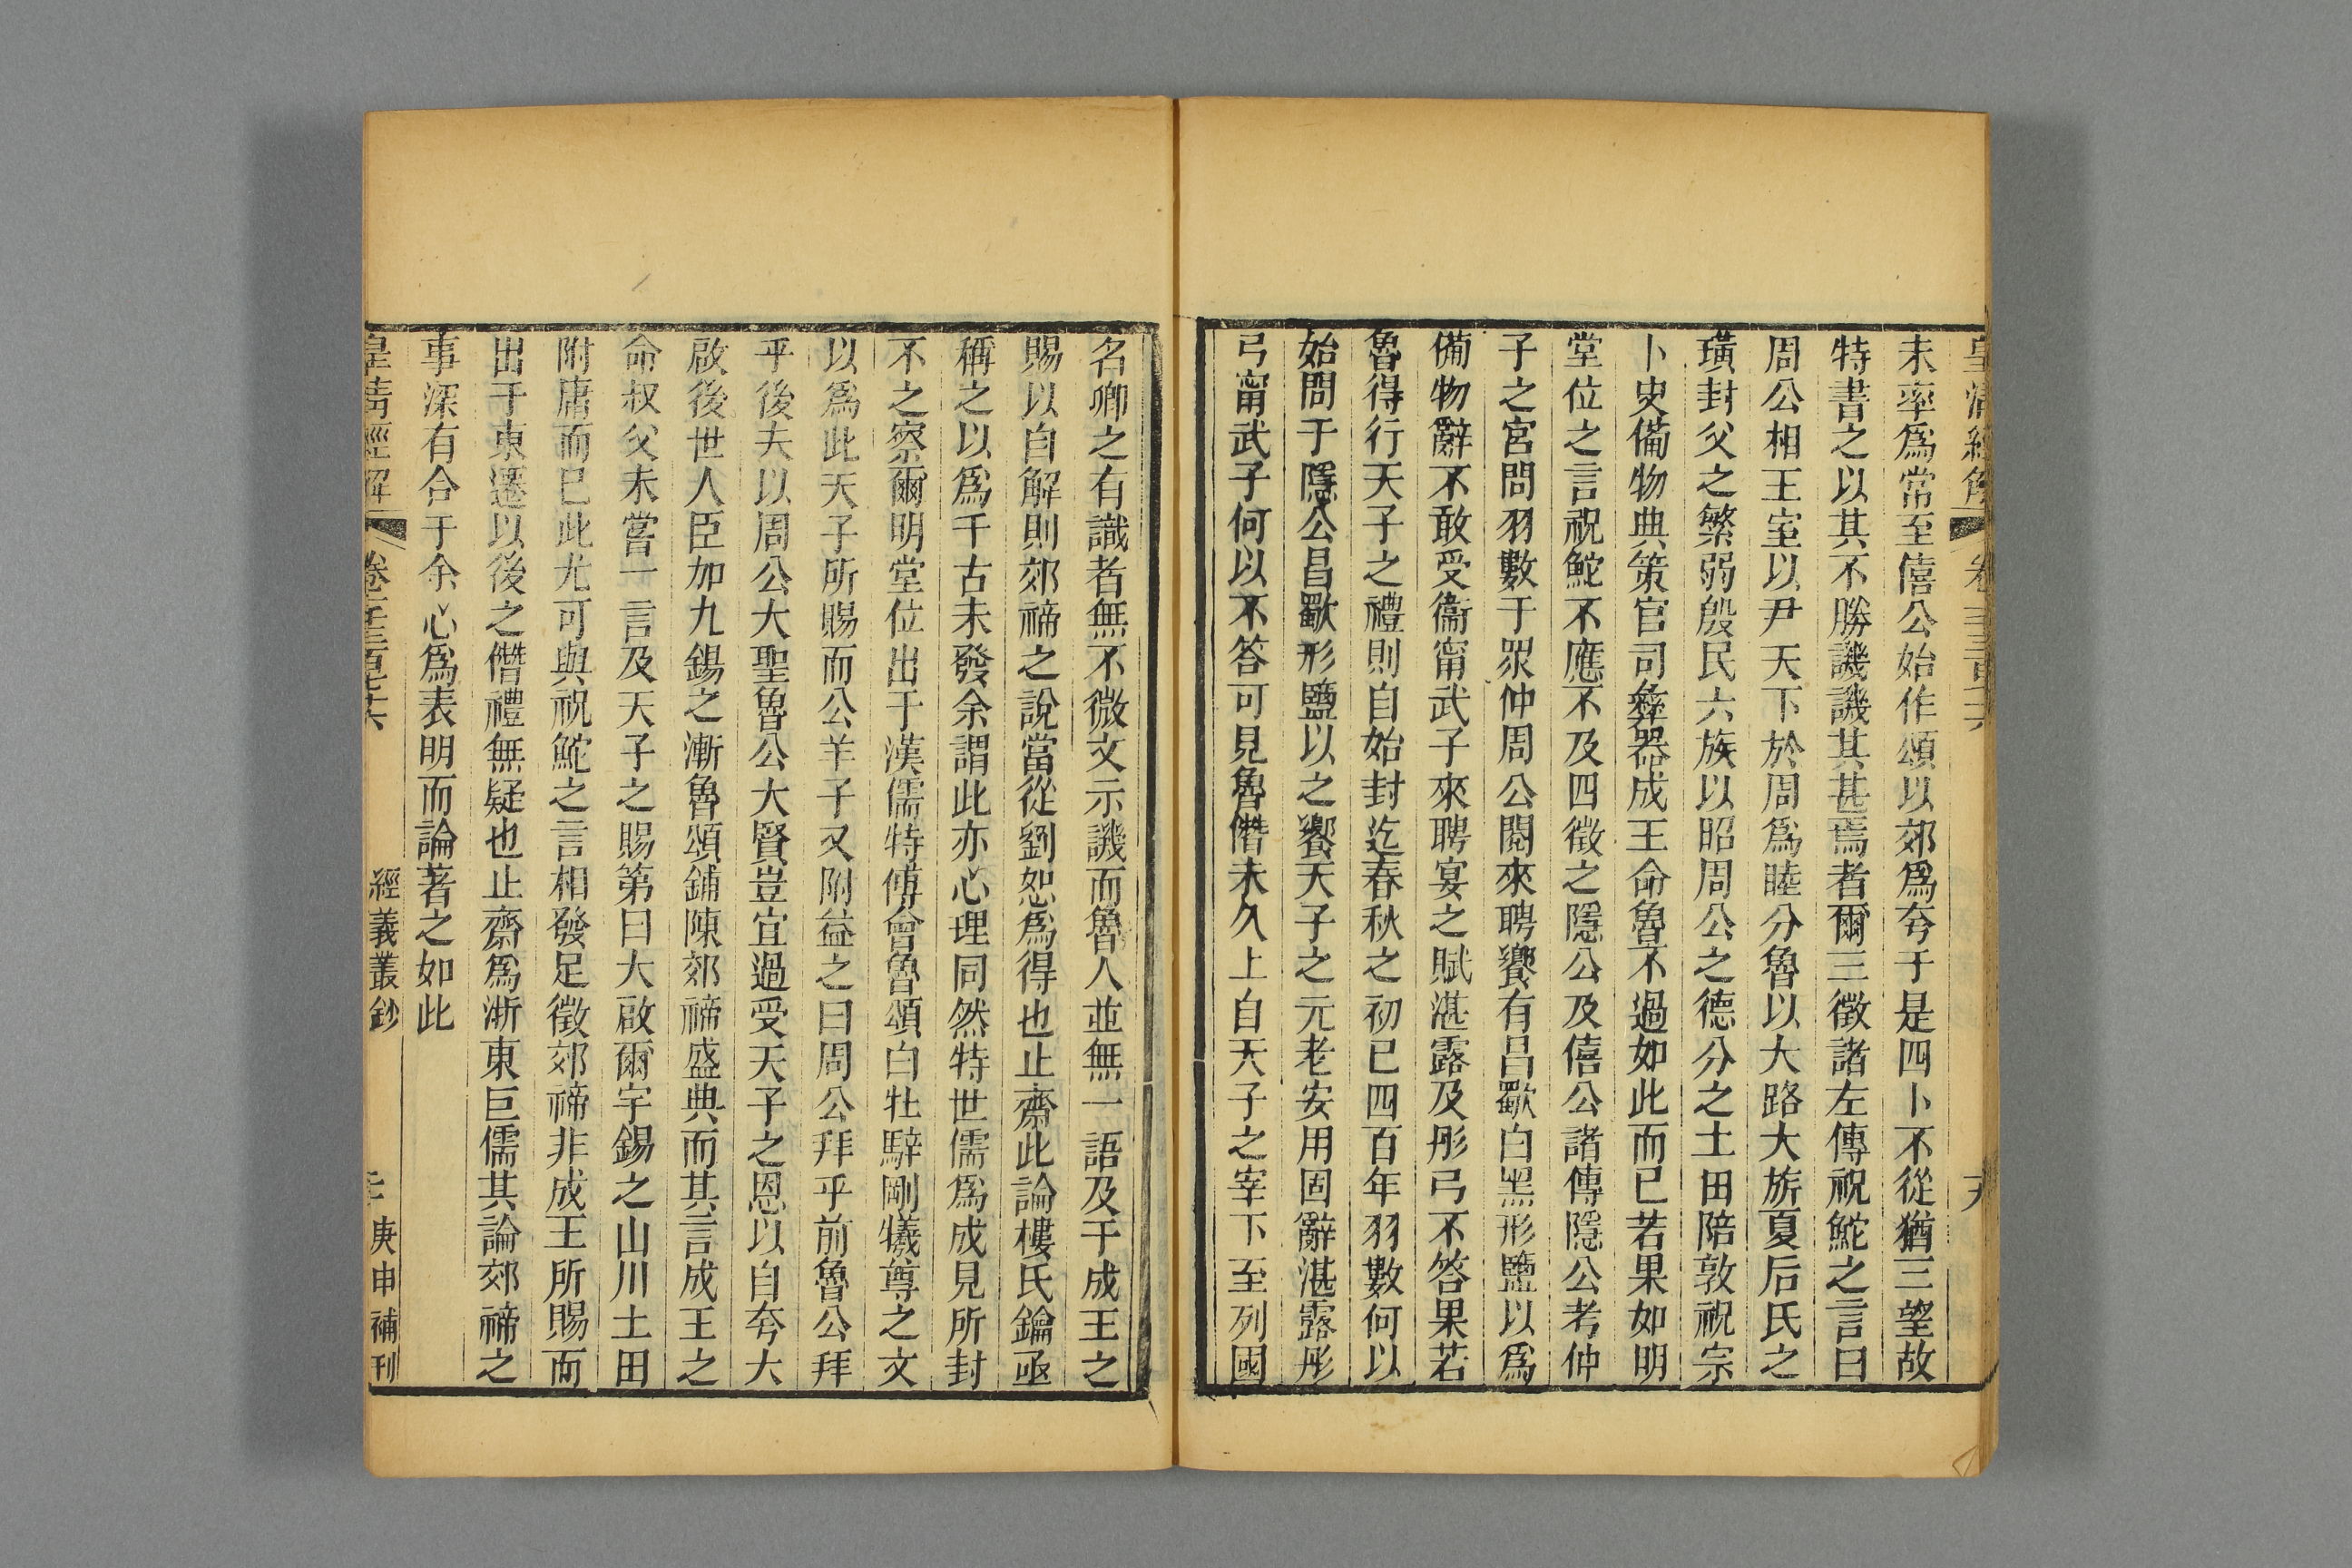 未率爲常至僖公始作頌以郊爲夸于是四卜不從猶三望故
特書之以其不勝譏譏其甚焉者爾三徵諸左傳祝鮀之言曰
周公相王室以尹天下於周爲睦分魯以大路大旂夏后氏之
璜封父之繁弱殷民六族以昭周公之德分之土田陪敦祝宗
卜史備物典策官司彝器成王命魯不過如此而已若果如明
堂位之言祝鮀不應不及四徵之隱公及僖公諸傳隱公考仲
子之宮問羽數于眾仲周公閱來聘饗有昌歜白黑形鹽以爲
備物辭不敢受衞甯武子來聘宴之賦湛露及彤弓不答果若
魯得行天子之禮則自始封迄春秋之初已四百年羽數何以
始問于隱公昌歜形鹽以之饗天子之元老安用固辭湛露彤
弓甯武子何以不答可見魯僭未久上自天子之宰下至列國
名卿之有識者無不微文示譏而魯人並無一語及于成王之
賜以自解則郊禘之說當從劉恕爲得也止齋此論樓氏鑰亟
稱之以爲千古未發余謂此亦心理同然特世儒爲成見所封
不之察爾明堂位出于漢儒特傅會魯頌白牡騂剛犧尊之文
以爲此天子所賜而公羊子又附益之曰周公拜乎前魯公拜
乎後夫以周公大聖魯公大賢豈宜過受天子之恩以自夸大
啟後世人臣加九錫之漸魯頌鋪陳郊禘盛典而其言成王之
命叔父未嘗一言及天子之賜第曰大啟爾宇錫之山川土田
附庸而已此尤可與祝鮀之言相發足徵郊禘非成王所賜而
出于東遷以後之僭禮無疑也止齋爲浙東巨儒其論郊禘之
事深有合于余心爲表明而論著之如此
皇清經解
經義叢鈔
庚申補刊